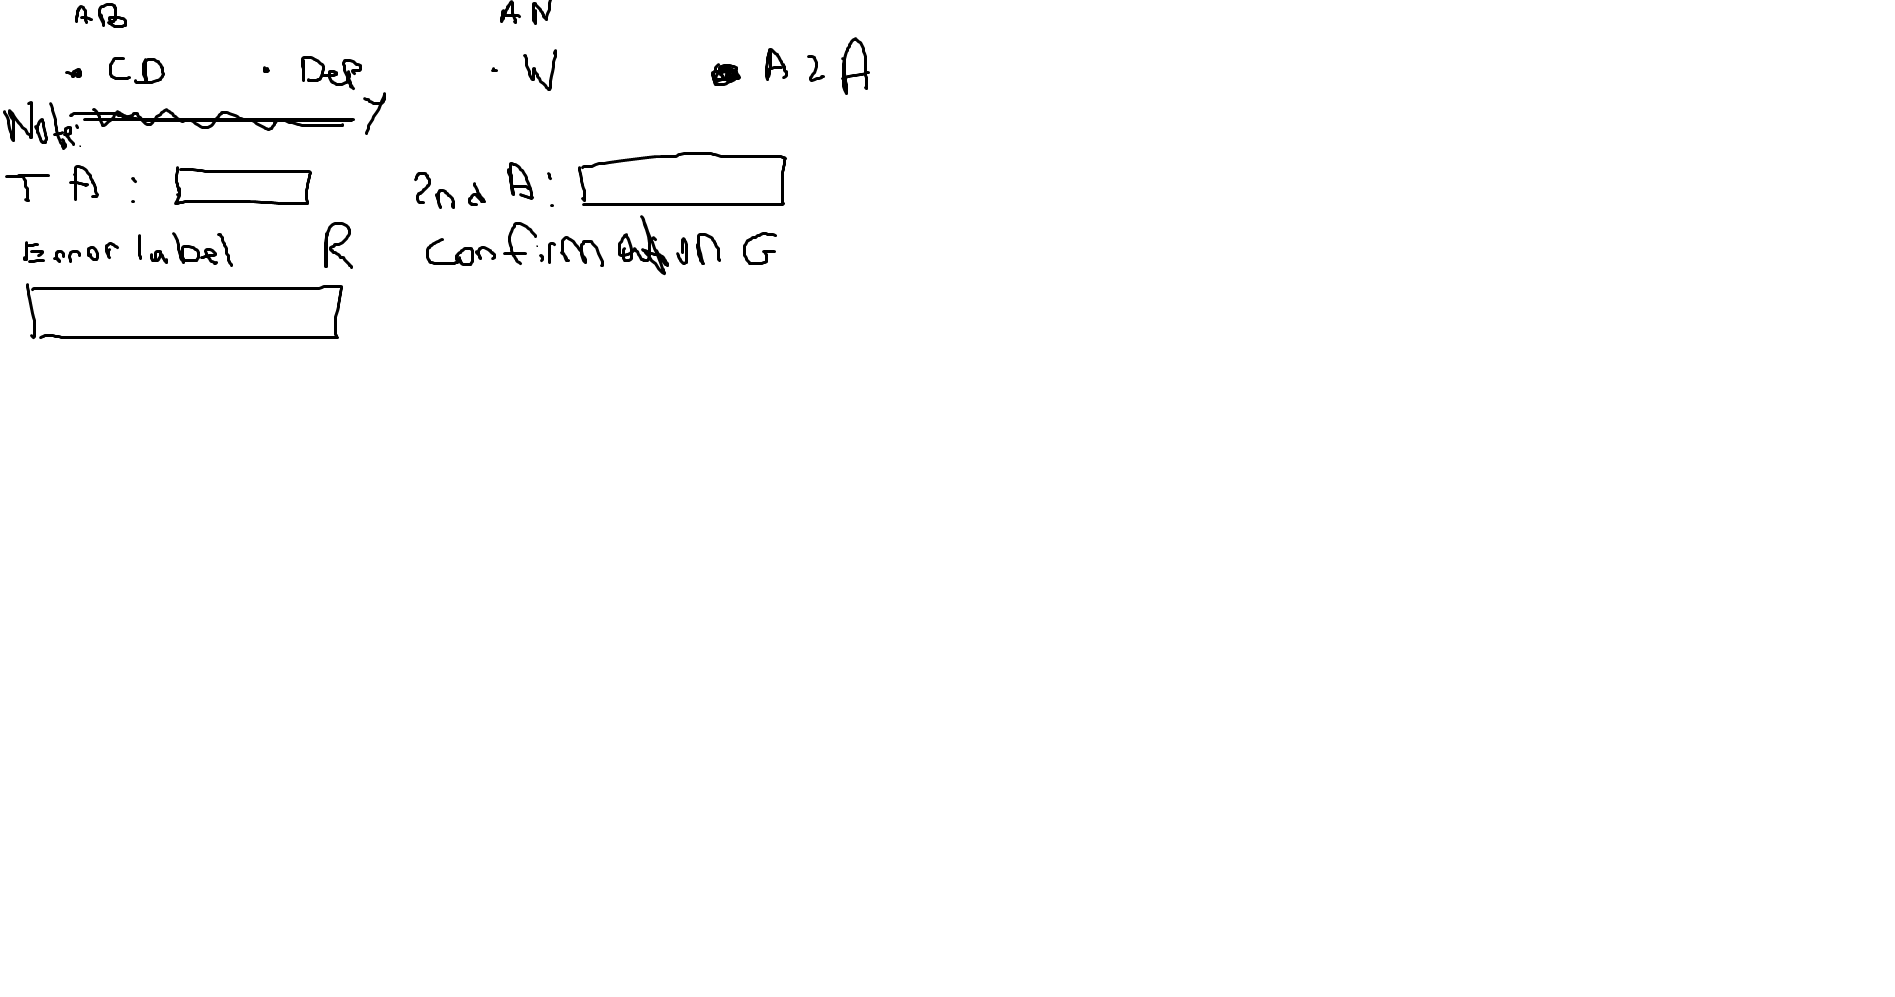 AB AN
• CD • Dep • W • A 2 A
Note: Y
T A : 2nd A:
Error label R Confirmation G